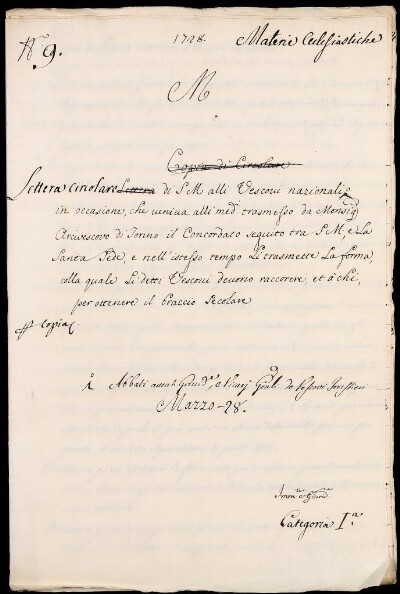 N.° 9.
1728.
Materie Eclesiastiche
M
Copia di Circolare
Lettera Circolare Lettera di S.M. alli Vescovi nazionali
in occasione, che veniva alli med.mi trasmesso da Monsig.r
Arcivescovo di Torino il Concordato seguito tra S.M, e la
Santa Sede, e nell'istesso tempo Li trasmette La forma,
colla quale Li detti Vescovi devono raccorere, et à chi,
per ottenere il braccio Secolare
Copia
Abbati e Vicarj Gnli de
Marzo - 28.
Categoria I.a